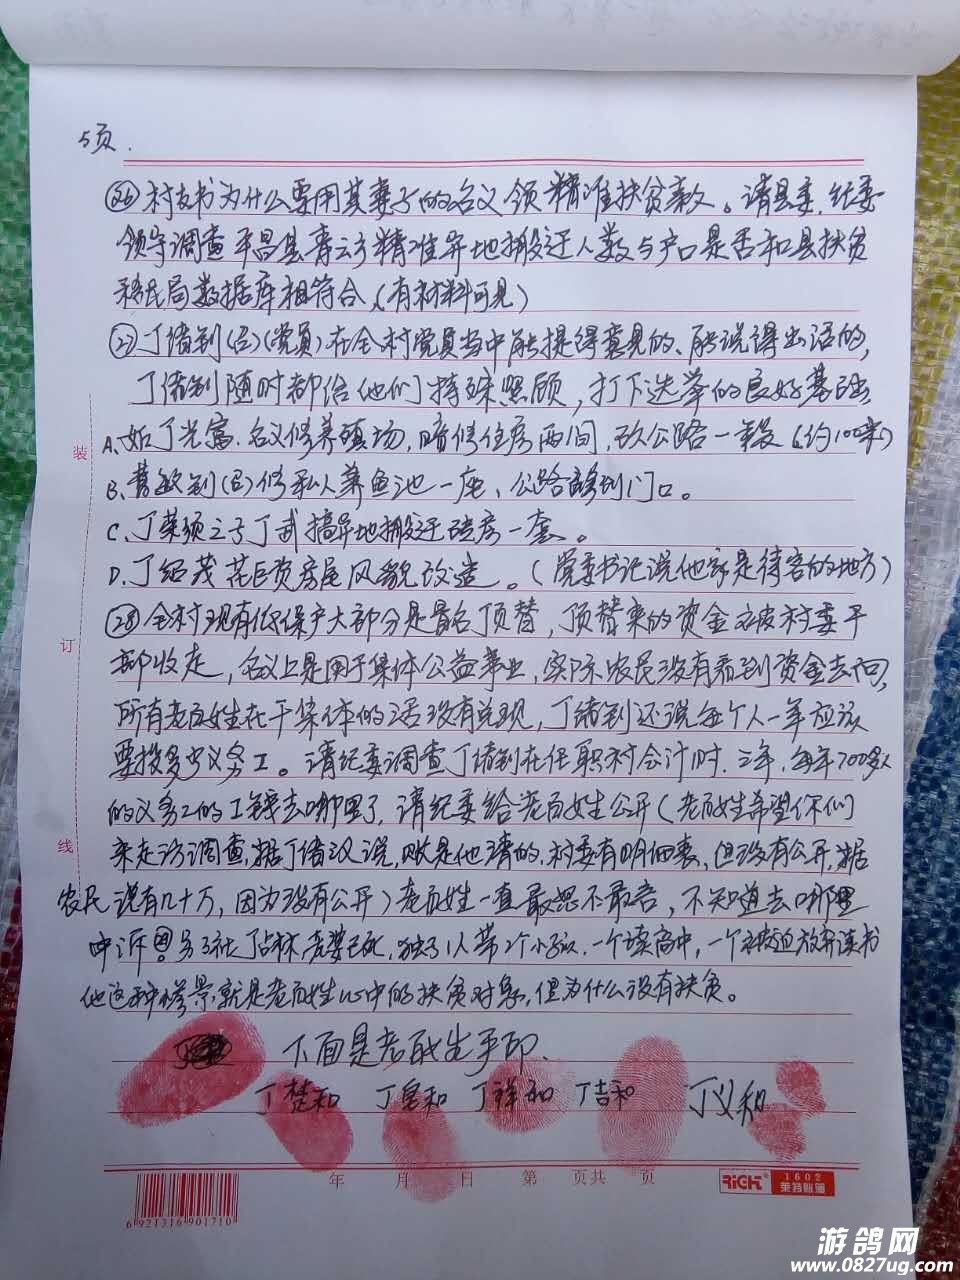 5页.
㉖村支书为什么要用其妻子的名义领精准扶贫款。请县委.纪委
领导调查平昌县青云乡精准异地搬迁人数与户口是否和县扶贫
移民局数据库相符合.(有材料可见)
㉗丁绪钊(吕)(党员)在全村党员当中能提得意见的、能说得出话的,
丁绪钊随时都给他们特殊照顾,打下选举的良好基础
A.如丁光富.名义修养殖场,暗修住房两间,砍公路一段(约100米)
B.敏钊(吕)修私人养鱼池一座、公路到门口。
C.丁荣须之子丁武搞异地搬迁砖房一套。
D.丁绍茂花巨资房屋风貌改造。(党委书记说他家是待客的地方)
㉘全村现有低保户大部分是冒名顶替,顶替来的资金又被村委干
部收走,名义上是用于集体公益事业,实际农民没有看到资金去向,
所有老百姓在干集体的活没有兑现,丁绪钊还说每个人一年应该
要投多少义务工。请纪委调查丁绪钊在任职村会计时.三年,每年700多人
的义务工的工钱去哪里了,请纪委给老百姓公开(老百姓希望你们
来走访调查,据丁绪汉说,账是他清的.村委有明细表,但没有公开.据
农民说有几十万,因为没有公开)老百姓一直敢怒不敢言,不知道去哪里
申诉 另3社丁占林老婆已死.独子1人带2个小孩.一个读高中,一个被迫放弃读书
他这种情景.就是老百姓心中的扶贫对象,但为什么没有扶贫。
下面是老百姓手印.
丁楚和 丁和 丁祥和 丁吉和 丁义和
装
订
线
年 月 日 第 页共 页
RiGHT 1602
莱特账簿
6 921316 901710
游鸽网
www.0827ug.com